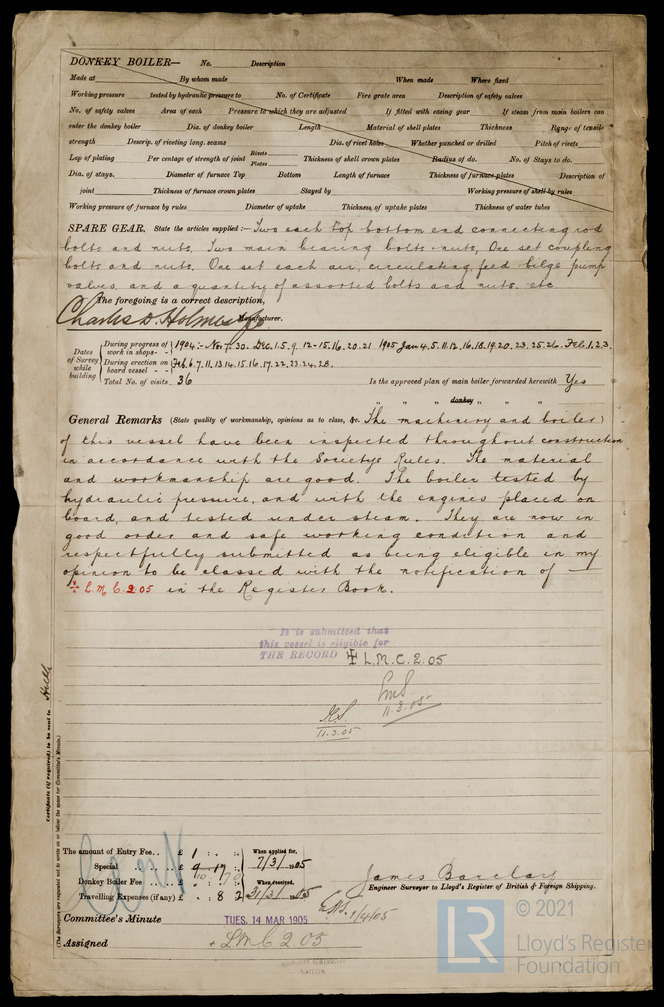 DONKEY BOILER— No. Description
Made at By whom made When made Where fixed
Working pressure tested by hydraulic pressure to No. of Certificate Fire grate area Description of safety valves
No. of safety valves Area of each Pressure to which they are adjusted If fitted with easing gear If steam from main boilers can
enter the donkey boiler Dia. of donkey boiler Length Material of shell plates Thickness Range of tensile
strength Descrip. of riveting long. seams Dia. of rivet holes Whether punched or drilled Pitch of rivets
Lap of plating Per centage of strength of joint Rivets Plates Thickness of shell crown plates Radius of do. No. of Stays to do.
Dia. of stays. Diameter of furnace Top Bottom Length of furnace Thickness of furnace plates Description of
joint Thickness of furnace crown plates Stayed by Working pressure of shell by rules
Working pressure of furnace by rules Diameter of uptake Thickness of uptake plates Thickness of water tubes
SPARE GEAR. State the articles supplied:— Two each top bottom end connecting rod
bolts and nuts, Two main bearing bolts & nuts, One set coupling
bolts and nuts, One set each air, circulating, feed bilge pump
valves, and a quantity of assorted bolts and nuts, etc
The foregoing is a correct description,
Charles D. Holmes & Co Manufacturer.
Dates of Survey while building
During progress of work in shops - - 1904:- Nov. 7. 30. Dec. 1. 5. 9. 12-15. 16. 20. 21 1905 Jan 4. 5. 11. 12. 16. 18. 19. 20. 23. 25. 26. Feb. 1. 2. 3.
During erection on board vessel - - Feb. 6. 7. 11. 13. 14. 15. 16. 17. 22. 23. 24. 28.
Total No. of visits 36 Is the approved plan of main boiler forwarded herewith Yes
" " " donkey " " "
General Remarks (State quality of workmanship, opinions as to class, &c. The machinery and boiler)
of this vessel have been inspected throughout construction
in accordance with the Societys Rules. The material
and workmanship are good. The boiler tested by
hydraulic pressure, and with the engines placed on
board, and tested under steam. They are now in
good order and safe working condition and
respectfully submitted as being eligible in my
opinion to be classed with the notification of —
+ L.M.C. 2.05 in the Register Book.
It is submitted that
this vessel is eligible for
THE RECORD + L.M.C. 2.05
11.3.05
11.3.05
Certificate (if required) to be sent to Hull
(The Surveyors are requested not to write on or below the space for Committee's Minute.)
The amount of Entry Fee.. £ 1 : : When applied for,
Special .. £ 9 : 17 : 7/3/1905
Donkey Boiler Fee .. £ : : When received,
Travelling Expenses (if any) £ : 8 : 2 31/3/1905
1/4/05
James Barclay
Engineer Surveyor to Lloyd's Register of British & Foreign Shipping.
Committee's Minute TUES. 14 MAR 1905
Assigned + LMC 2.05
LR
© 2021
Lloyd's Register
Foundation